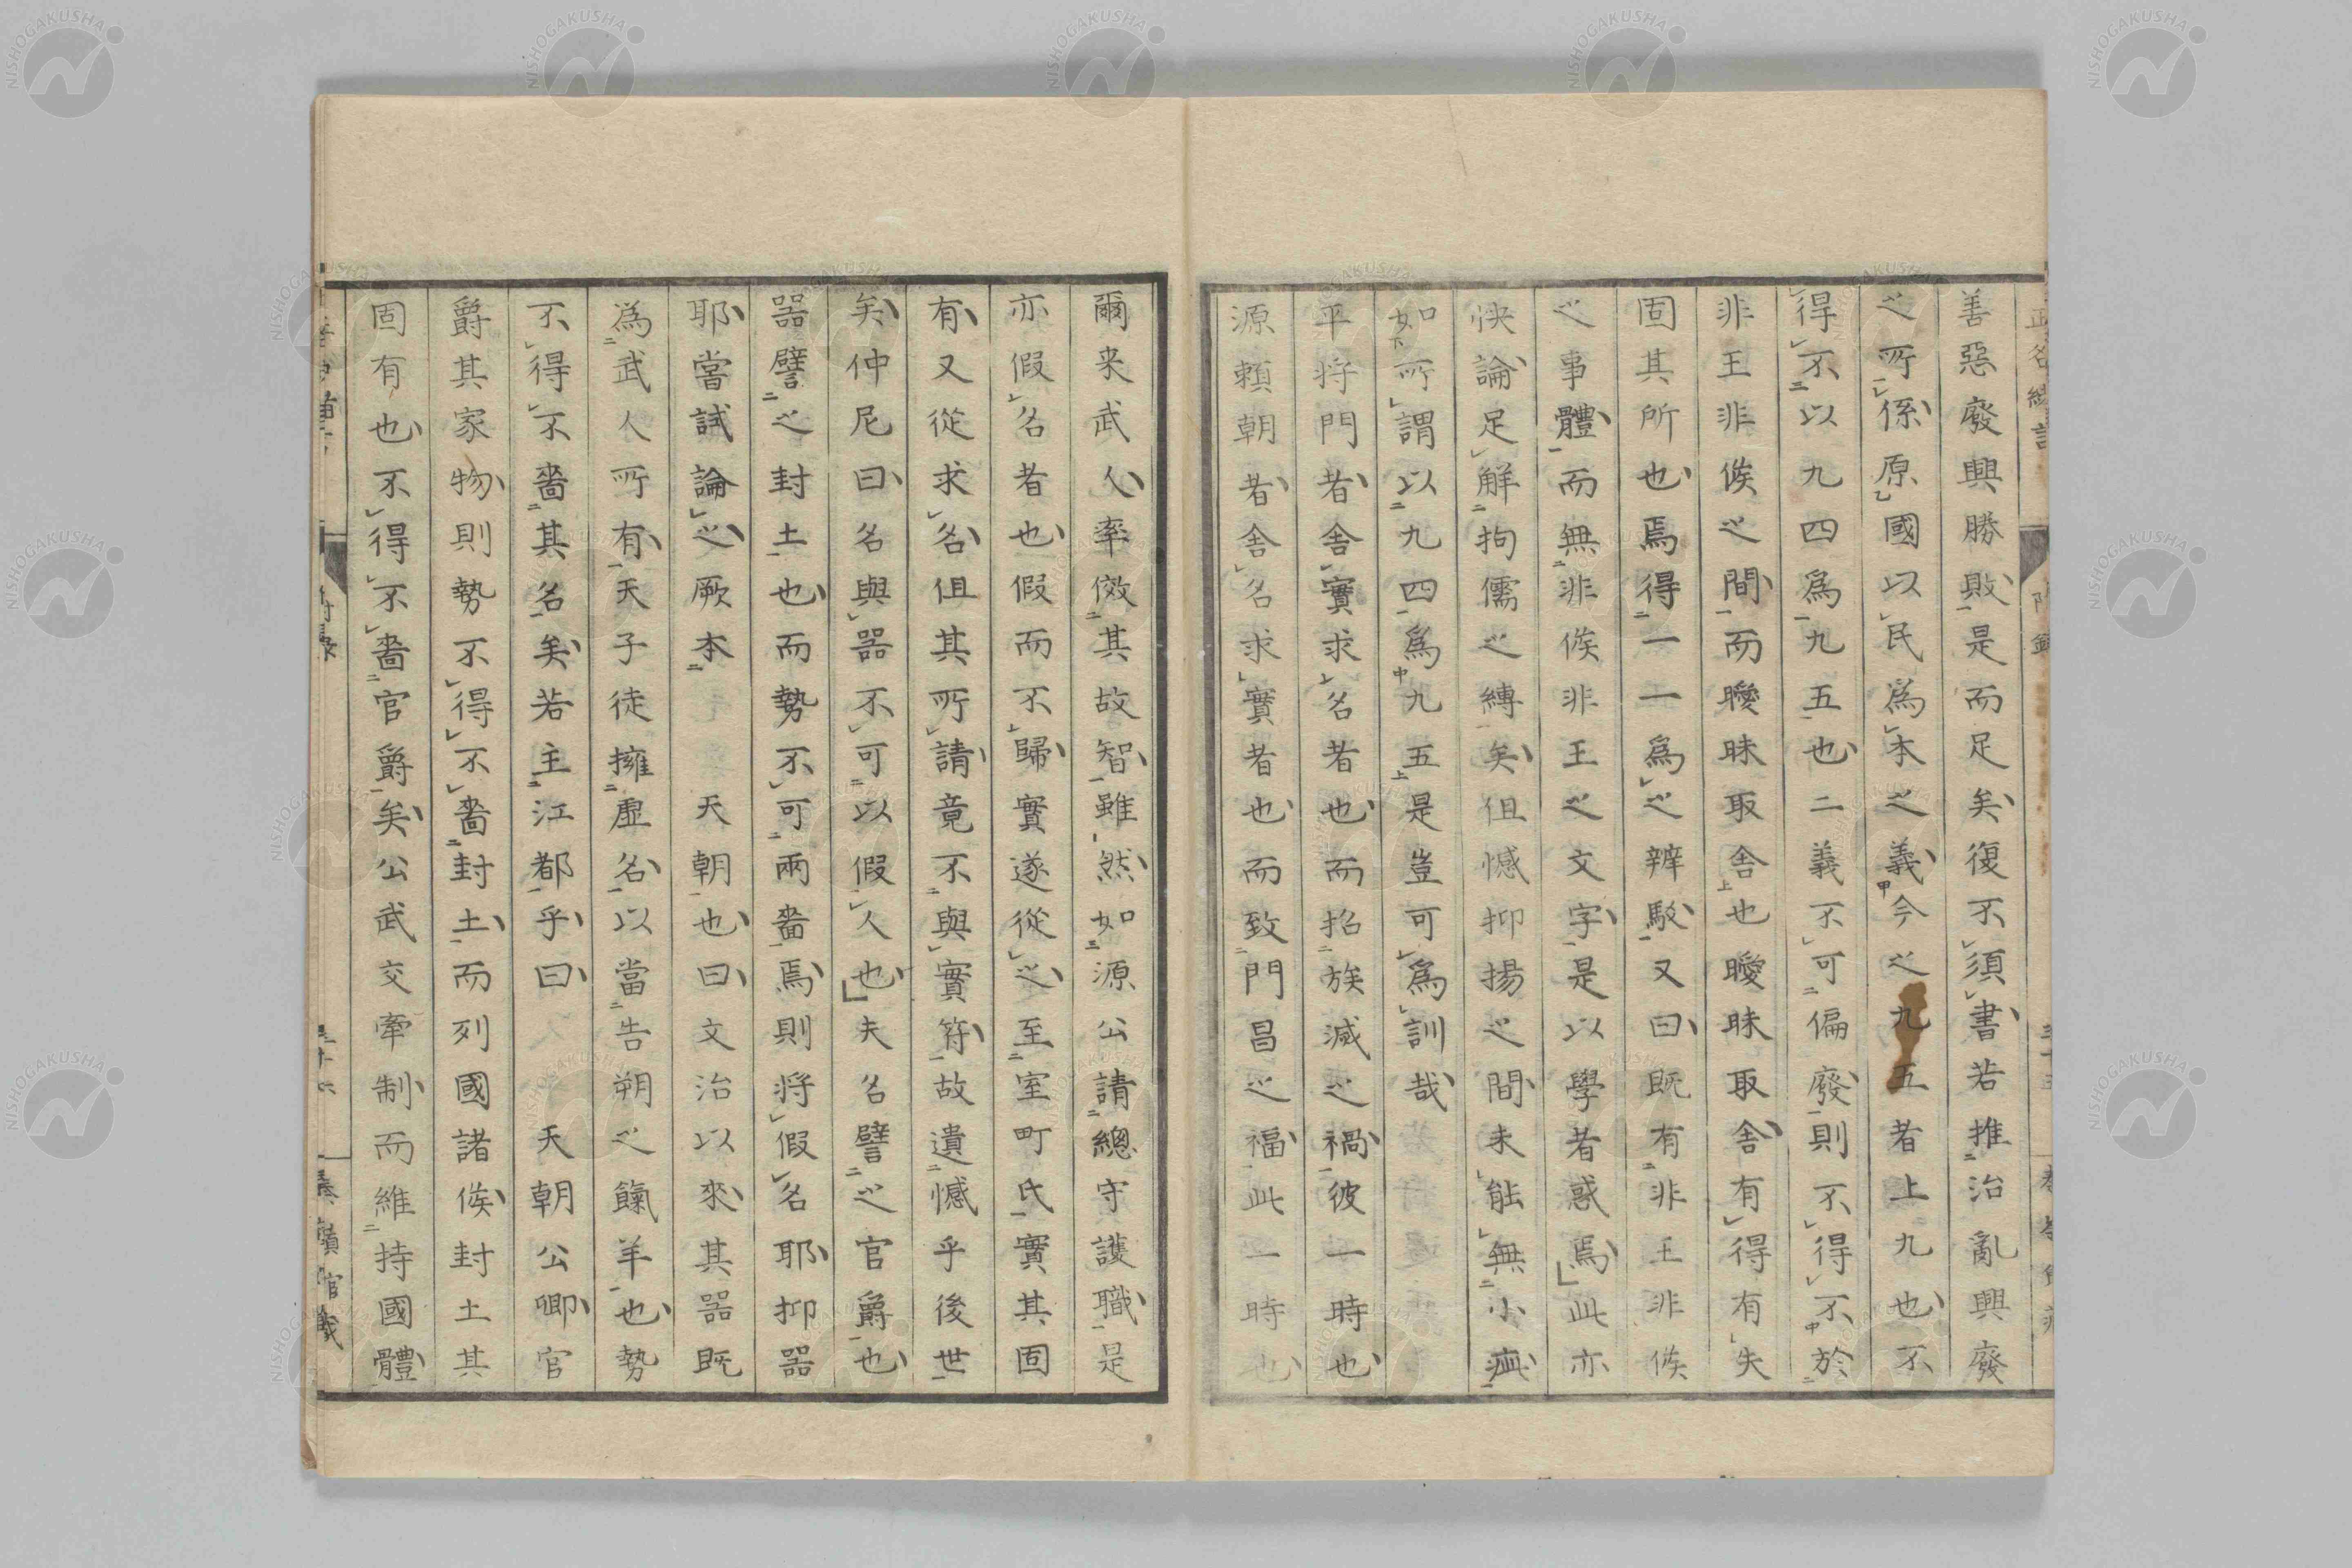 善惡廢興勝敗是而足矣復不須書若推治亂興廢
之所係原國以民爲本之義今之九五者上九也不
得不以九四爲九五也二義不可偏廢則不得不於
非王非侯之間而曖昧取舍也曖昧取舍有得有失
固其所也焉得一一爲之辨駁又曰既有非王非侯
之事體而無非侯非王之文字是以學者惑焉此亦
快論足解拘儒之縛矣但憾抑揚之間未能無小疵
如所謂以九四爲九五是豈可爲訓哉
平将門者舍實求名者也而招族滅之禍彼一時也
源頼朝者舍名求實者也而致門昌之福此一時也
爾来武人率傚其故智雖然如源公請總守護職是
亦假名者也假而不歸實遂從之至室町氏實其固
有又從求名但其所請竟不與實符故遺憾乎後世
矣仲尼曰名與器不可以假人也夫名譬之官爵也
器譬之封土也而勢不可兩嗇焉則将假名耶抑器
耶嘗試論之厥本天朝也曰文治以來其器既
爲武人所有天子徒擁虚名以當告朔之餼羊也勢
不得不嗇其名矣若主江都乎曰天朝公卿官
爵其家物則勢不得不嗇封土而列國諸侯封土其
固有也不得不嗇官爵矣公武交牽制而維持國體
NISHOGAKUSHA